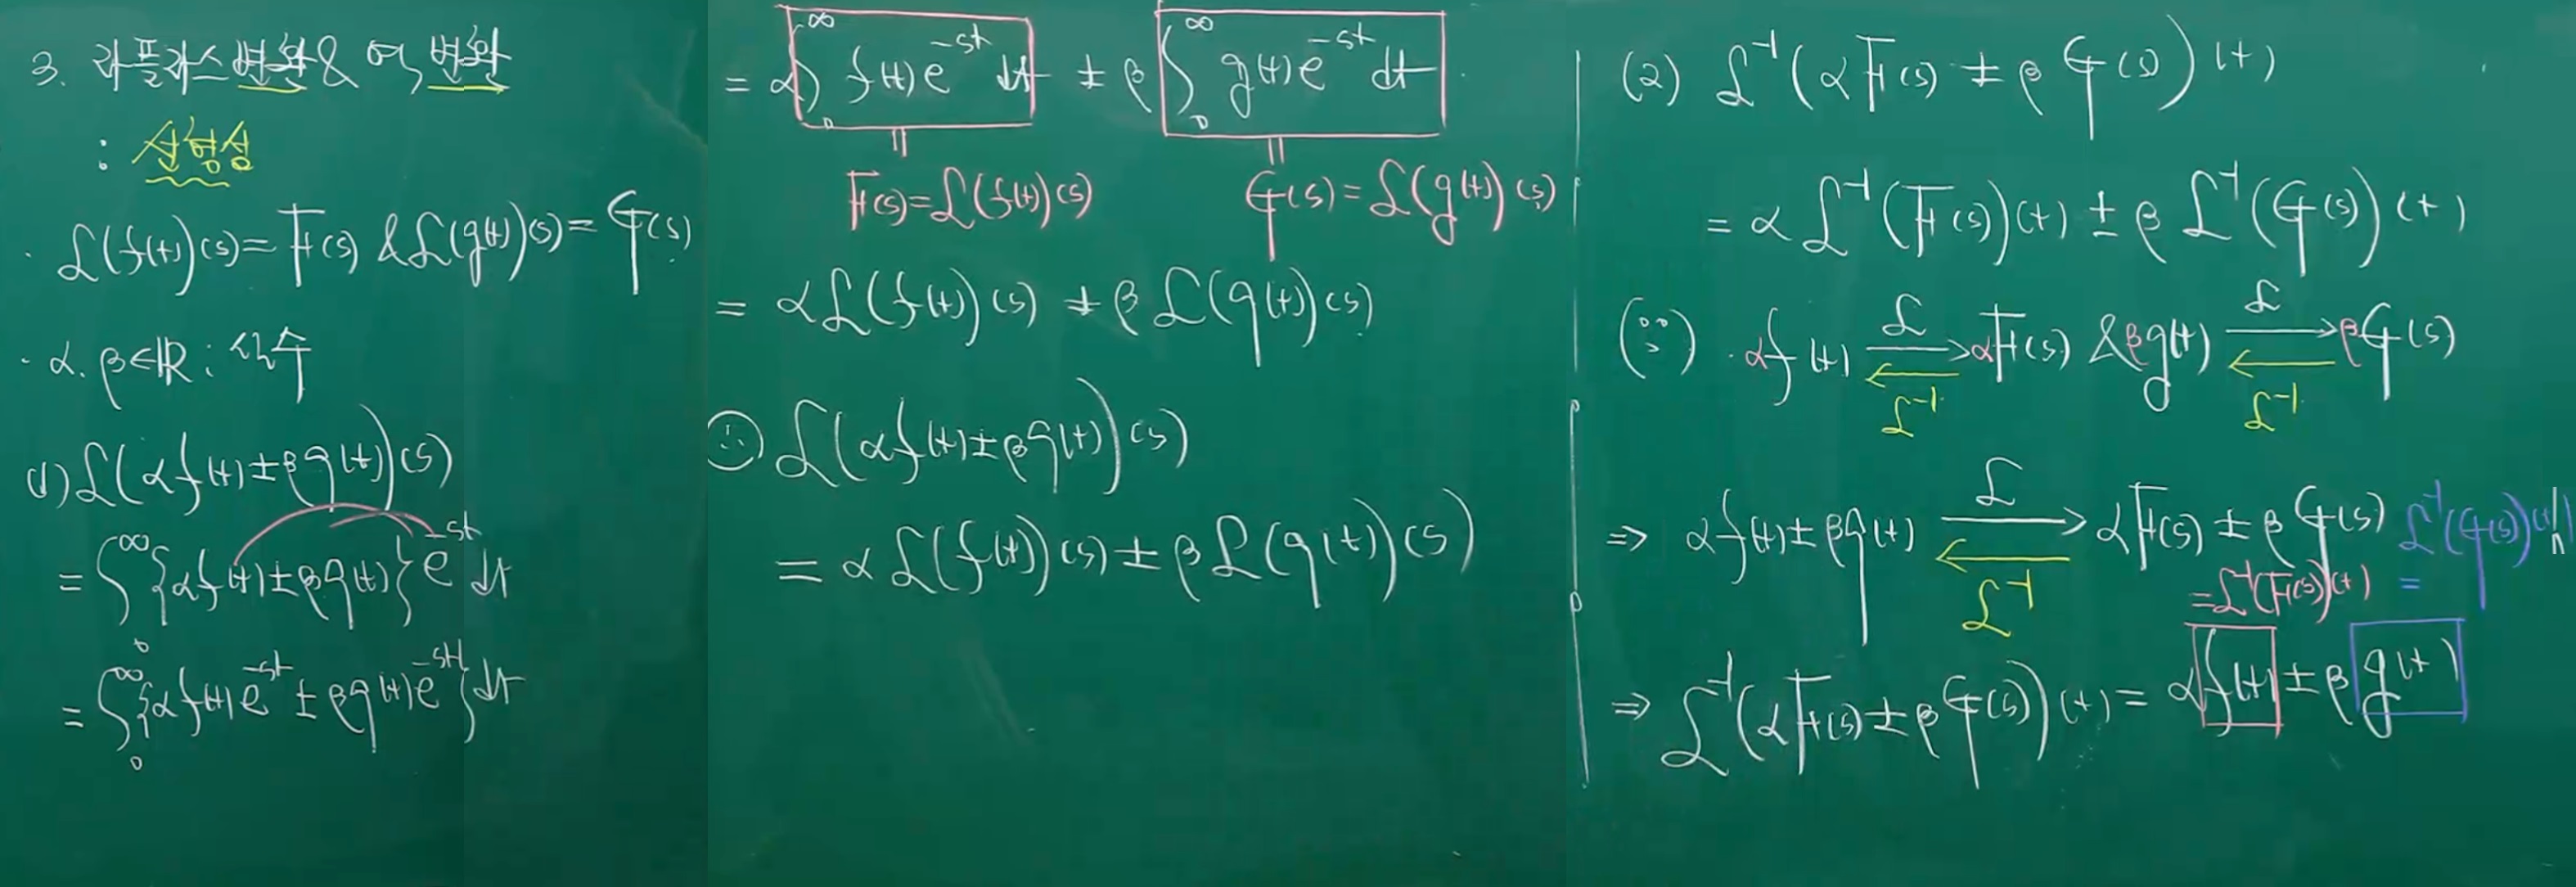 3. 라플라스 변환 & 역변환
: 선형성
· ℒ(f(t))(s) = F(s) & ℒ(g(t))(s) = G(s)
· α, β ∈ ℝ : 상수
(1) ℒ(αf(t) ± βg(t))(s)
= ∫₀^∞ {αf(t) ± βg(t)} e^{-st} dt
= ∫₀^∞ {αf(t)e^{-st} ± βg(t)e^{-st}} dt
= α∫₀^∞ f(t)e^{-st} dt ± β∫₀^∞ g(t)e^{-st} dt
|| ||
F(s) = ℒ(f(t))(s) G(s) = ℒ(g(t))(s)
= αℒ(f(t))(s) ± βℒ(g(t))(s)
∴ ℒ(αf(t) ± βg(t))(s)
= αℒ(f(t))(s) ± βℒ(g(t))(s)
(2) ℒ⁻¹(αF(s) ± βG(s))(t)
= αℒ⁻¹(F(s))(t) ± βℒ⁻¹(G(s))(t)
(∵) · αf(t) ⟶ ℒ αF(s) & βg(t) ⟶ ℒ βG(s)
⟵ ℒ⁻¹ ⟵ ℒ⁻¹
⇒ αf(t) ± βg(t) ⟶ ℒ αF(s) ± βG(s) ℒ⁻¹(G(s))(t)
⟵ ℒ⁻¹ = ℒ⁻¹(F(s))(t) =
⇒ ℒ⁻¹(αF(s) ± βG(s))(t) = αf(t) ± βg(t)